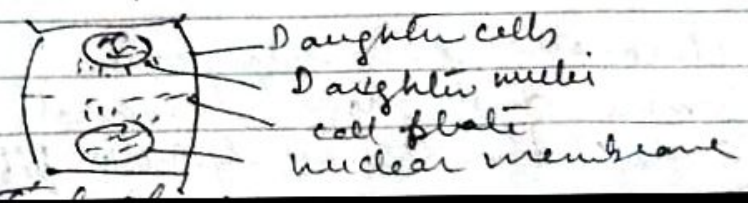 Daughter cells
Daughter nuclei
cell plate
nuclear membrane